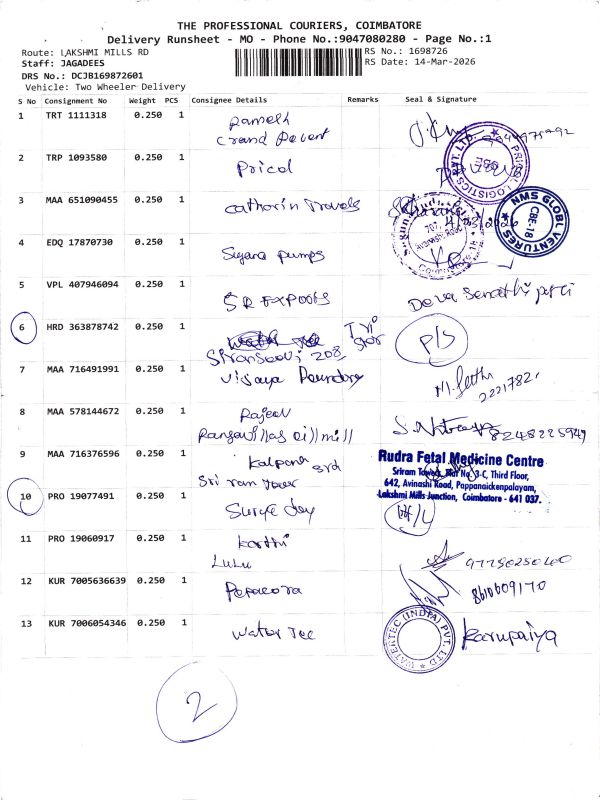 THE PROFESSIONAL COURIERS, COIMBATORE
Delivery Runsheet - MO - Phone No.:9047080280 - Page No.:1
Route: LAKSHMI MILLS RD
RS No.: 1698726
Staff: JAGADEES
RS Date: 14-Mar-2026
DRS No.: DCJB169872601
Vehicle: Two Wheeler Delivery
S No Consignment No Weight PCS Consignee Details Remarks Seal & Signature
1 TRT 1111318 0.250 1
2 TRP 1093580 0.250 1 Pricol
PRICOL LOGISTICS PVT. LTD.
3 MAA 651090455 0.250 1 Catharin Travels
NMS GLOBL VENTURES CBE-18
4 EDQ 17870730 0.250 1 Sugana pumps
5 VPL 407946094 0.250 1 SR EXPOOTS
6 HRD 363878742 0.250 1
208
P/S
7 MAA 716491991 0.250 1 Vijaya
8 MAA 578144672 0.250 1 Rajeev
8248225949
9 MAA 716376596 0.250 1 Kalpana
Rudra Fetal Medicine Centre
Sriram Tower, Flat No. 3-C, Third Floor,
642, Avinashi Road, Pappanaickenpalayam,
Lakshmi Mills Junction, Coimbatore - 641 037.
10 PRO 19077491 0.250 1
11 PRO 19060917 0.250 1 Karthi
LULU
12 KUR 7005636639 0.250 1
8610609170
13 KUR 7006054346 0.250 1 Water Tec
WATERTEC (INDIA) PVT. LTD
Karupaiya
2